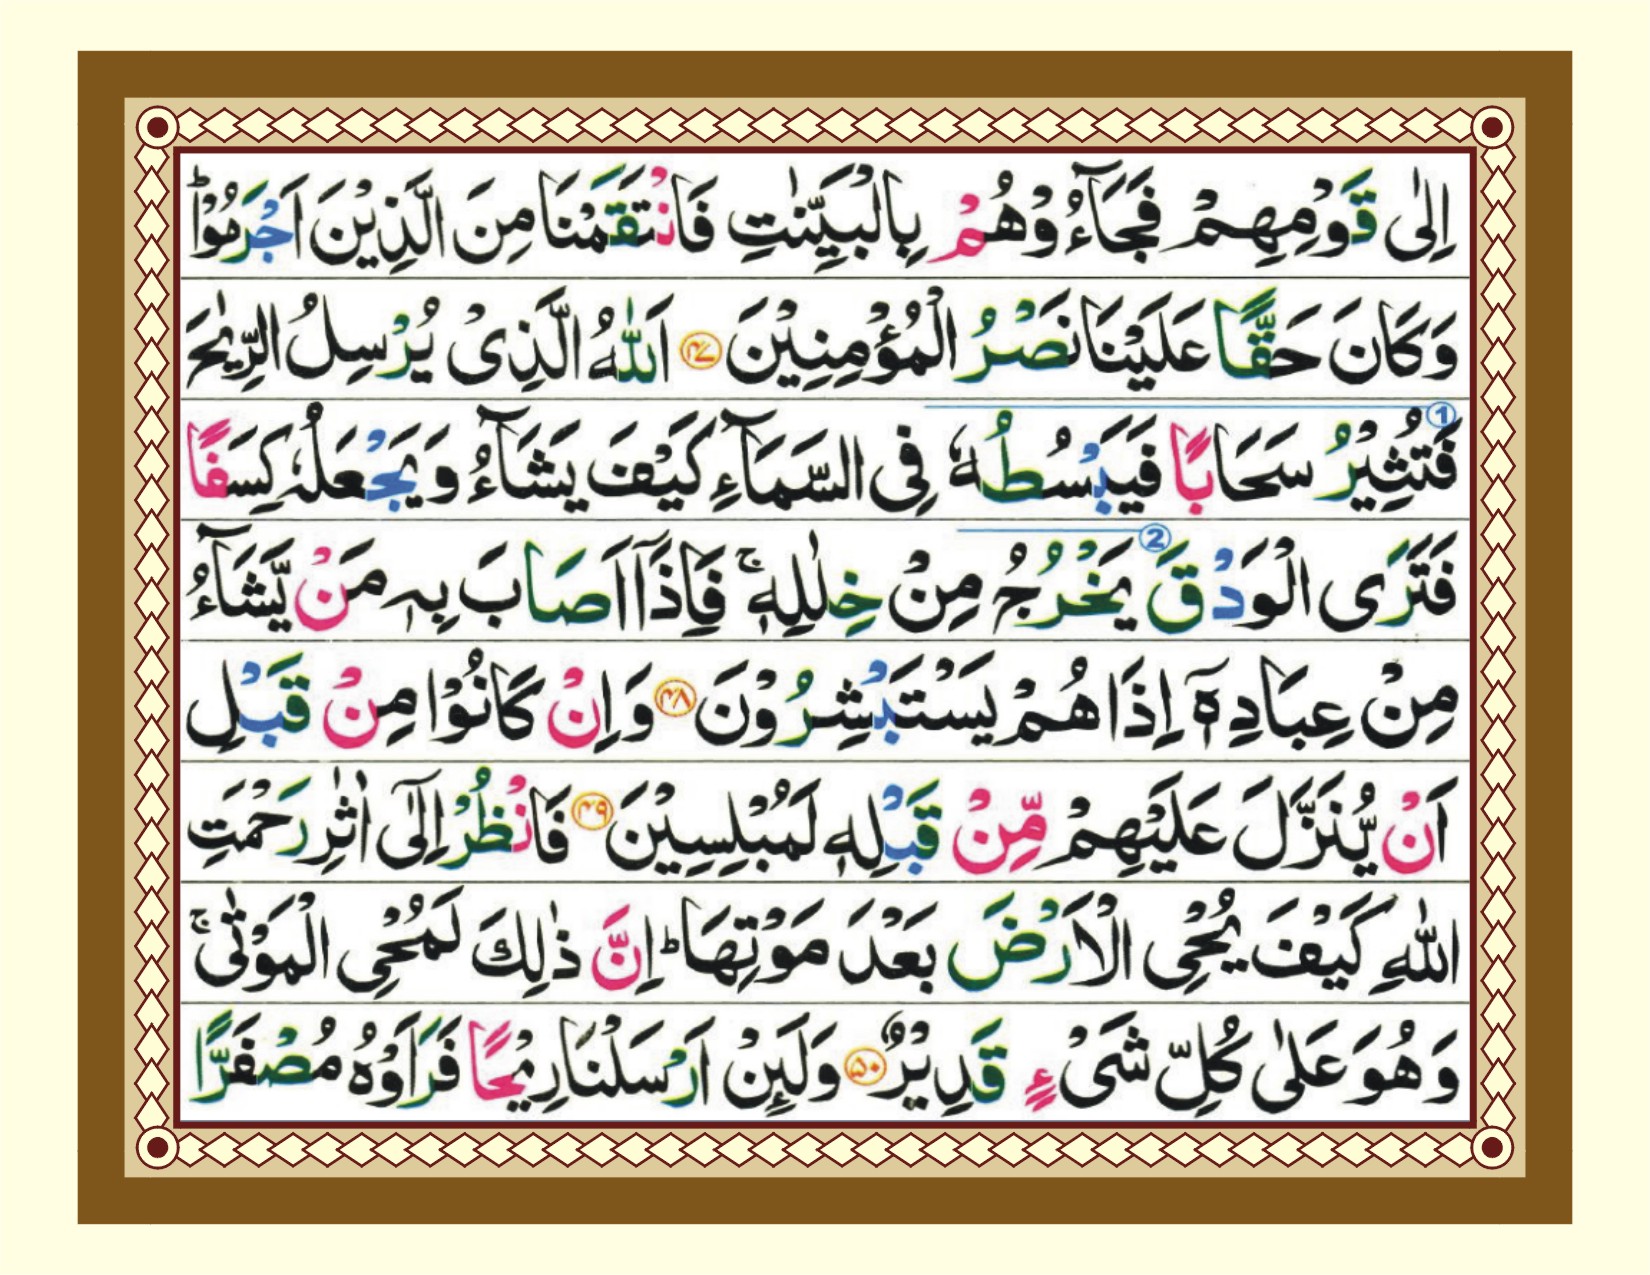 اِلٰى قَوْمِهِمْ فَجَآءُوْهُمْ بِالْبَيِّنٰتِ فَانْتَقَمْنَا مِنَ الَّذِيْنَ اَجْرَمُوْا ؕ
وَكَانَ حَقًّا عَلَيْنَا نَصْرُ الْمُؤْمِنِيْنَ ۴۷ اَللّٰهُ الَّذِىْ يُرْسِلُ الرِّيٰحَ
① فَتُثِيْرُ سَحَابًا فَيَبْسُطُهٗ فِى السَّمَآءِ كَيْفَ يَشَآءُ وَيَجْعَلُهٗ كِسَفًا
فَتَرَى الْوَدْقَ ② يَخْرُجُ مِنْ خِلٰلِهٖ ۚ فَاِذَاۤ اَصَابَ بِهٖ مَنْ يَّشَآءُ
مِنْ عِبَادِهٖۤ اِذَا هُمْ يَسْتَبْشِرُوْنَ ۴۸ وَاِنْ كَانُوْا مِنْ قَبْلِ
اَنْ يُّنَزَّلَ عَلَيْهِمْ مِّنْ قَبْلِهٖ لَمُبْلِسِيْنَ ۴۹ فَانْظُرْ اِلٰٓى اَثٰرِ رَحْمَتِ
اللّٰهِ كَيْفَ يُحْىِ الْاَرْضَ بَعْدَ مَوْتِهَا ؕ اِنَّ ذٰلِكَ لَمُحْىِ الْمَوْتٰى ۚ
وَهُوَ عَلٰى كُلِّ شَىْءٍ قَدِيْرٌ ۵۰ وَلَئِنْ اَرْسَلْنَا رِيْحًا فَرَاَوْهُ مُصْفَرًّا